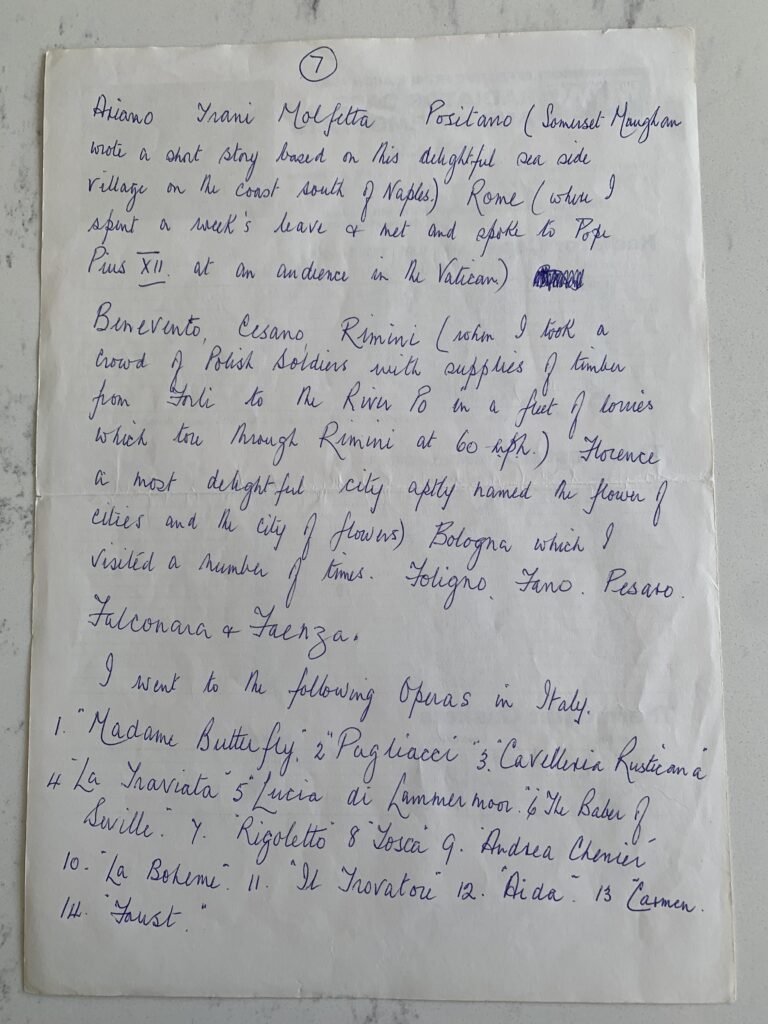 7
Ariano Trani Molfetta Positano (Somerset Maughan
wrote a short story based on this delightful sea side
village on the coast south of Naples.) Rome (where I
spent a week's leave & met and spoke to Pope
Pius XII. at an audience in the Vatican)
Benevento, Cesano, Rimini (when I took a
crowd of Polish Soldiers with supplies of timber
from Forli to the River Po in a fleet of lorries
which tore through Rimini at 60 mph.) Florence
a most delightful city aptly named the flower of
cities and the city of flowers) Bologna which I
visited a number of times. Foligno. Fano. Pesaro.
Falconara & Faenza.
I went to the following Operas in Italy.
1. "Madame Butterfly". 2 "Pagliacci" 3. "Cavelleria Rusticana"
4 "La Traviata" 5 "Lucia di Lammermoor." 6 The Baber of
Seville". 7. "Rigoletto" 8 "Tosca" 9. "Andrea Chenier"
10. "La Boheme". 11. "Il Trovatore" 12. "Aida". 13 "Carmen.
14. "Faust."